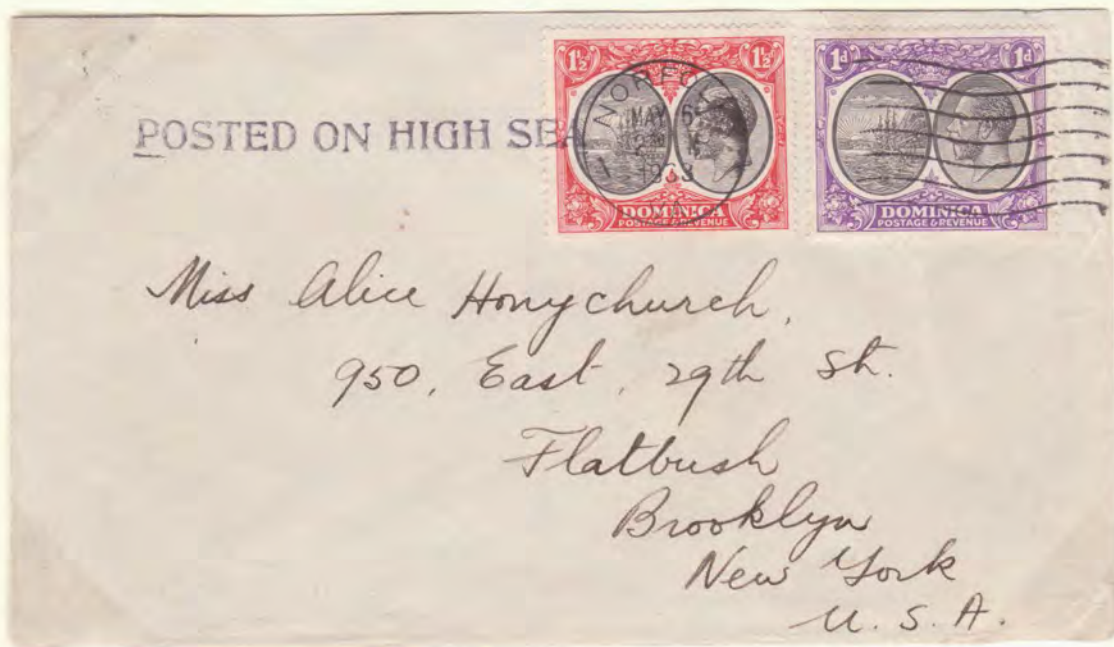 1½ 1½ 1d 1d
POSTED ON HIGH SEA
NORFOLK
MAY 5
1933
VA.
DOMINICA
POSTAGE & REVENUE
DOMINICA
POSTAGE & REVENUE
Miss Alice Honychurch,
950, East, 29th St.
Flatbush
Brooklyn
New York
U. S. A.